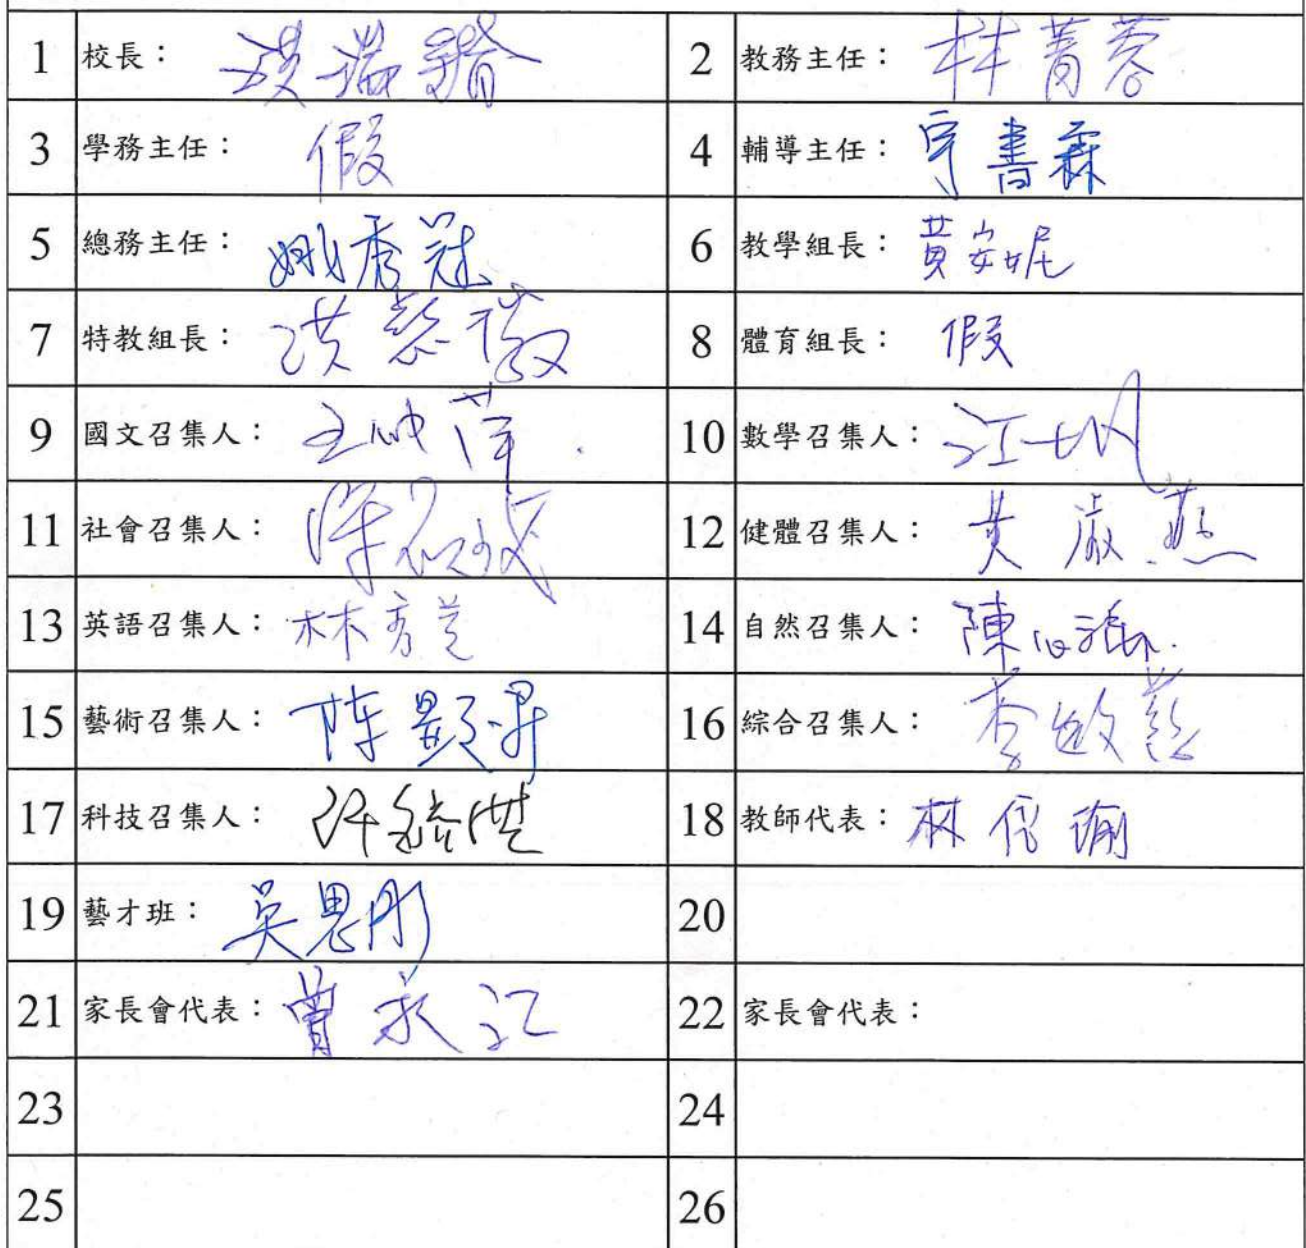 1 校長： 2 教務主任：林菁蓉
3 學務主任：假 4 輔導主任：書霖
5 總務主任：姚秀冠 6 教學組長：黃安妮
7 特教組長：洪慈徽 8 體育組長：假
9 國文召集人：王 萍 10 數學召集人：江
11 社會召集人：陳 12 健體召集人：黃淑燕
13 英語召集人：林秀芝 14 自然召集人：陳
15 藝術召集人：陈顯昇 16 綜合召集人：李敏慈
17 科技召集人：許 18 教師代表：林 瑜
19 藝才班：吳思彤 20
21 家長會代表：曾永江 22 家長會代表：
23 24
25 26